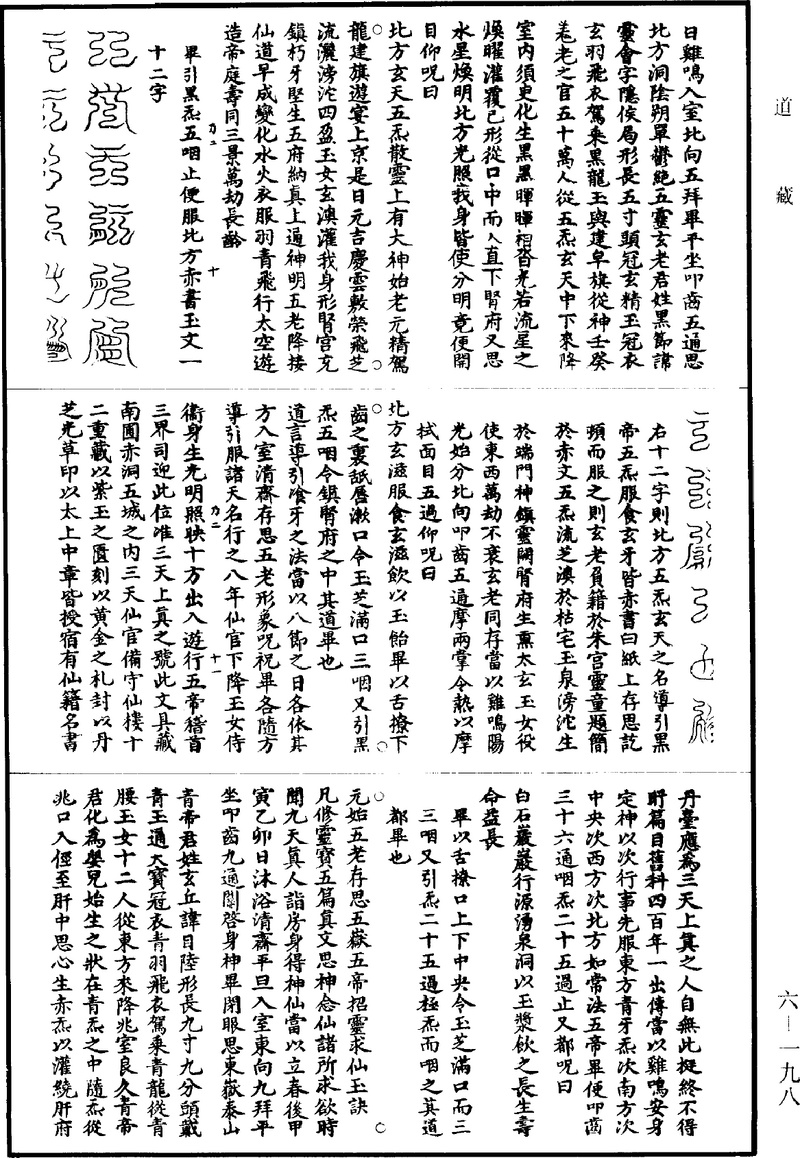 道藏
日雞鳴入室北向五拜畢平坐叩齒五通思
北方洞陰朔單鬱絕五靈玄老君姓黑節諱
靈會字隱侯局形長五寸頭冠玄精玉冠衣
玄羽飛衣駕乘黑龍玉輿建皁旗從神壬癸
老之官五十萬人從五炁玄天中下來降
室內須臾化生黑黑暉暉相沓光若流星之
煥曜灌覆己形從口中而入直下腎府又思
水星煥明北方光照我身皆使分明竟便開
目仰呪曰
北方玄天五炁散靈上有大神始老元精駕
龍建旗遊宴上京是日元吉慶雲敷榮飛芝
流灑滂沱四盈玉女玄澳灌我身形腎宮充
鎮朽牙堅生五府納真上通神明五老降接
仙道早成變化水火衣服羽青飛行太空遊
造帝庭壽同三景萬劫長齡
畢引黑炁五咽止便服北方赤書玉文一
十二字
右十二字則北方五炁玄天之名導引黑
帝五炁服食玄牙皆赤書白紙上存思訖
頓而服之則玄老負籍於朱宮靈童題簡
於赤文五炁流芝澳於枯宅玉泉滂沱生
於端門神鎮靈闕腎府生熏太玄玉女役
使東西萬劫不衰玄老同存當以雞鳴陽
光始分北向叩齒五通摩兩掌令熱以摩
拭面目五過仰呪曰
北方玄滋服食玄滋飲以玉飴畢以舌撩下
齒之裏舐脣漱口令玉芝滿口三咽又引黑
炁五咽令鎮腎府之中其道畢也
道言導引飡牙之法當以八節之日各依其
方入室清齋存思五老形象呪祝畢各隨方
導引服諸天名行之八年仙官下降玉女侍
衛身生光明照映十方出入遊行五帝稽首
三界司迎此位准三天上真之號此文具藏
南圃赤洞五城之內三天仙官備守仙樓十
二重藏以紫玉之匱刻以黃金之札封以丹
芝光草印以太上中章皆授宿有仙籍名書
丹臺應為三天上真之人自無此挺終不得
盱篇目舊科四百年一出傳當以雞鳴安身
定神以次行事先服東方青牙炁次南方次
中央次西方次北方如常法五帝畢便叩齒
三十六通咽炁二十五過止又都呪曰
白石巖巖行源湧泉洞以玉漿飲之長生壽
命益長
畢以舌撩口上下中央令玉芝滿口而三
三咽又引炁二十五過極炁而咽之其道
都畢也
元始五老存思五嶽五帝招靈求仙玉訣
凡修靈寶五篇真文思神念仙諸所求欲時
聞九天真人詣房身得神仙當以立春後甲
寅乙卯日沐浴清齋平旦入室東向九拜平
坐叩齒九通關啓身神畢閉眼思東嶽泰山
青帝君姓玄丘諱目陸形長九寸九分頭戴
青玉通天寶冠衣青羽飛衣駕乘青龍從青
腰玉女十二人從東方來降兆室良久青帝
君化為嬰兒始生之狀在青炁之中隨炁從
兆口入徑至肝中思心生赤炁以灌繞肝府
六—一九八